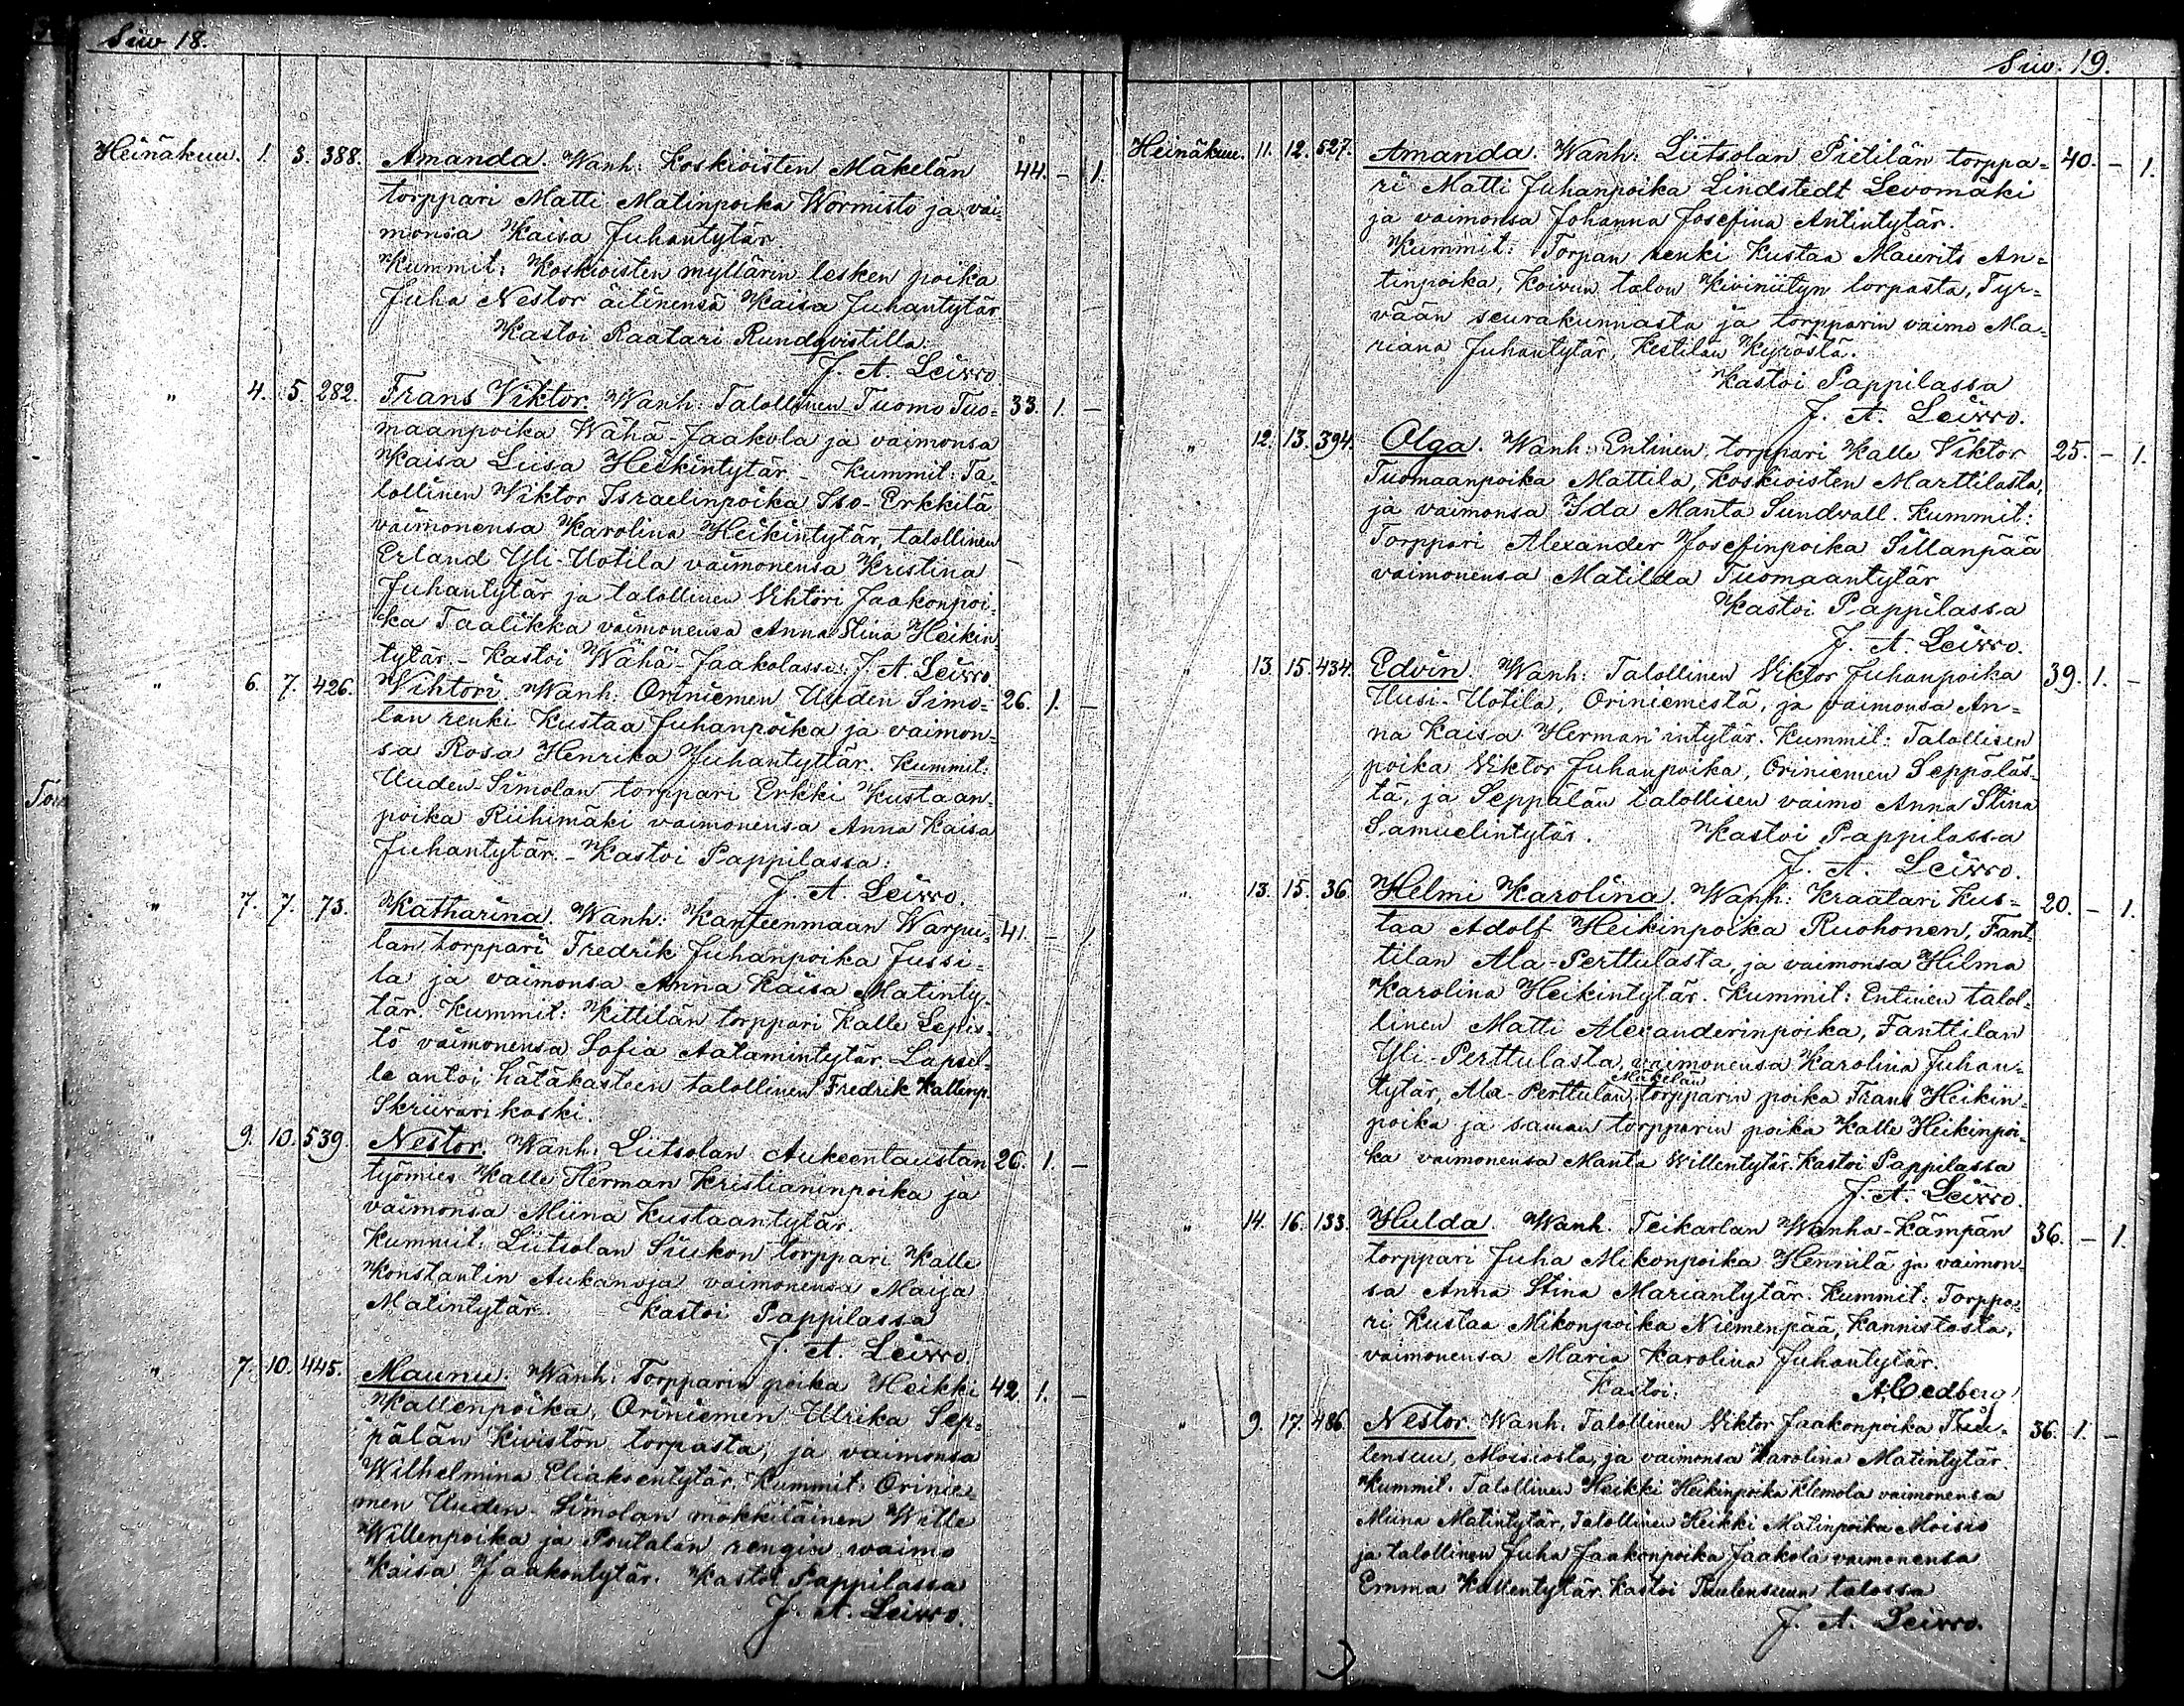 Siw 18.
Heinäkuu. 1. 3. 388. Amanda. Wanh: Koskioisten Mäkelän 44. – 1.
torppari Matti Matinpoika Wormisto ja vai=
monsa Kaisa Juhantytär
Kummit: Koskioisten myllärin lesken poika
Juha Nestor äitinensä Kaisa Juhantytär
Kastoi Raatari Rundqvistilla:
J. A. Leirro.
" 4. 5. 282. Frans Viktor. Wanh: Talollinen Tuomo Tuo= 33. 1. –
maanpoika Wähä-Jaakola ja vaimonsa
Kaisa Liisa Heikintytär. – Kummit: Ta=
lollinen Viktor Israelinpoika Iso-Erkkilä
vaimonensa Karolina Heikintytär, talollinen
Erland Yli-Uotila vaimonensa Kristina
Juhantytär ja talollinen Vihtöri Jaakonpoi=
ka Taalikka vaimonensa Anna Stina Heikin
tytär. – Kastoi Wähä-Jaakolassa: J. A. Leirro
" 6. 7. 426. Vihtori. Wanh: Oriniemen Uuden Simo= 26. 1. –
lan renki Kustaa Juhanpoika ja vaimon=
sa Rosa Henrika Juhantyttär. Kummit:
Uuden Simolan torppari Erkki Kustaan=
poika Riihimäki vaimonensa Anna Kaisa
Juhantytär. – Kastoi Pappilassa:
J. A. Leirro.
" 7. 7. 73. Katharina. Wanh: Kanteenmaan Warpu= 41. – 1.
lan torppari Fredrik Juhanpoika Jussi=
la ja vaimonsa Anna Kaisa Matinty=
tär. Kummit: Kittilän torppari Kalle Lepis=
tö vaimonensa Sofia Aatamintytär. Lapsel=
le antoi hätäkasteen talollinen Fredrik Kallenp.
Skriivarikoski.
" 9. 10. 539. Nestor. Wanh: Liitsolan Aukeentaustan 26. 1. –
työmies Kalle Herman Kristianinpoika ja
vaimonsa Miina Kustaantytär.
Kummit: Liitsolan Siukon torppari Kalle
Konstantin Aukanoja vaimonensa Maija
Matintytär. Kastoi Pappilassa
J. A. Leirro.
" 7. 10. 445. Maunu. Wanh: Torpparin poika Heikki 42. 1. –
Kallenpoika, Oriniemen Ulrika Sep=
pälän Kivistön torpasta, ja vaimonsa
Wilhelmina Eliaksentytär. Kummit: Orinie=
men Uuden-Simolan mökkiläinen Wille
Willenpoika ja Poutalan rengin waimo
Kaisa Jaakontytär. Kastoi Pappilassa
J. A. Leirro.
Siw. 19.
Heinäkuu. 11. 12. 527. Amanda. Wanh: Liitsolan Pietilän torppa= 40. – 1.
ri Matti Juhanpoika Lindstedt Levomäki
ja vaimonsa Johanna Josefina Antintytär.
Kummit: Torpan renki Kustaa Maurits An=
tinpoika, Koivun talon Kiviniityn torpasta, Tyr=
vään seurakunnasta ja torpparin vaimo Ma=
riana Juhantytär, Kestilän Kypöstä.
Kastoi Pappilassa
J. A. Leirro.
" 12. 13. 394. Olga. Wanh: Entinen torppari Kalle Viktor 25. – 1.
Tuomaanpoika Mattila, Koskioisten Marttilasta,
ja vaimonsa Ida Manta Sundvall. Kummit:
Torppari Alexander Josefinpoika Sillanpää
vaimonensa Matilda Tuomaantytär
Kastoi Pappilassa
J. A. Leirro.
" 13. 15. 434. Edvin. Wanh: Talollinen Viktor Juhanpoika 39. 1. –
Uusi-Uotila, Oriniemestä, ja vaimonsa An=
na Kaisa Herman'intytär. Kummit: Talollisen
poika Viktor Juhanpoika, Oriniemen Seppäläs=
tä, ja Seppälän talollisen vaimo Anna Stina
Samuelintytär. Kastoi Pappilassa
J. A. Leirro.
" 13. 15. 36. Helmi Karolina. Wanh: Kraatari Kus= 20. – 1.
taa Adolf Heikinpoika Ruohonen, Fant=
tilan Ala-Perttulasta, ja vaimonsa Hilma
Karolina Heikintytär. Kummit: Entinen talol=
linen Matti Alexanderinpoika, Fanttilan
Yli-Perttulasta, vaimonensa Karolina Juhan=
Mäkelän
tytär, Ala-Perttulan torpparin poika Frans Heikin=
poika ja saman torpparin poika Kalle Heikinpoi=
ka vaimonensa Manta Willentytär. Kastoi Pappilassa
J. A. Leirro.
" 14. 16. 133. Hulda Wanh. Teikarlan Wanha-Kämpän 36. – 1.
torppari Juha Mikonpoika Hennilä ja vaimon=
sa Anna Stina Mariantytär. Kummit: Torppa=
ri Kustaa Mikonpoika Niemenpää, Kannistosta,
vaimonensa Maria Karolina Juhantytär.
Kastoi: A. Cedberg
" 9. 17. 486. Nestor. Wanh: Talollinen Viktor Jaakonpoika Tuu= 36. 1. –
lensuu, Moisiosta, ja vaimonsa Karolina Matintytär.
Kummit. Talollinen Heikki Heikinpoika Klemola vaimonensa
Miina Matintytär, Talollinen Heikki Matinpoika Moisio
ja talollinen Juha Jaakonpoika Jaakola vaimonensa
Emma Kallentytär. Kastoi Tuulensuun talossa
J. A. Leirro.